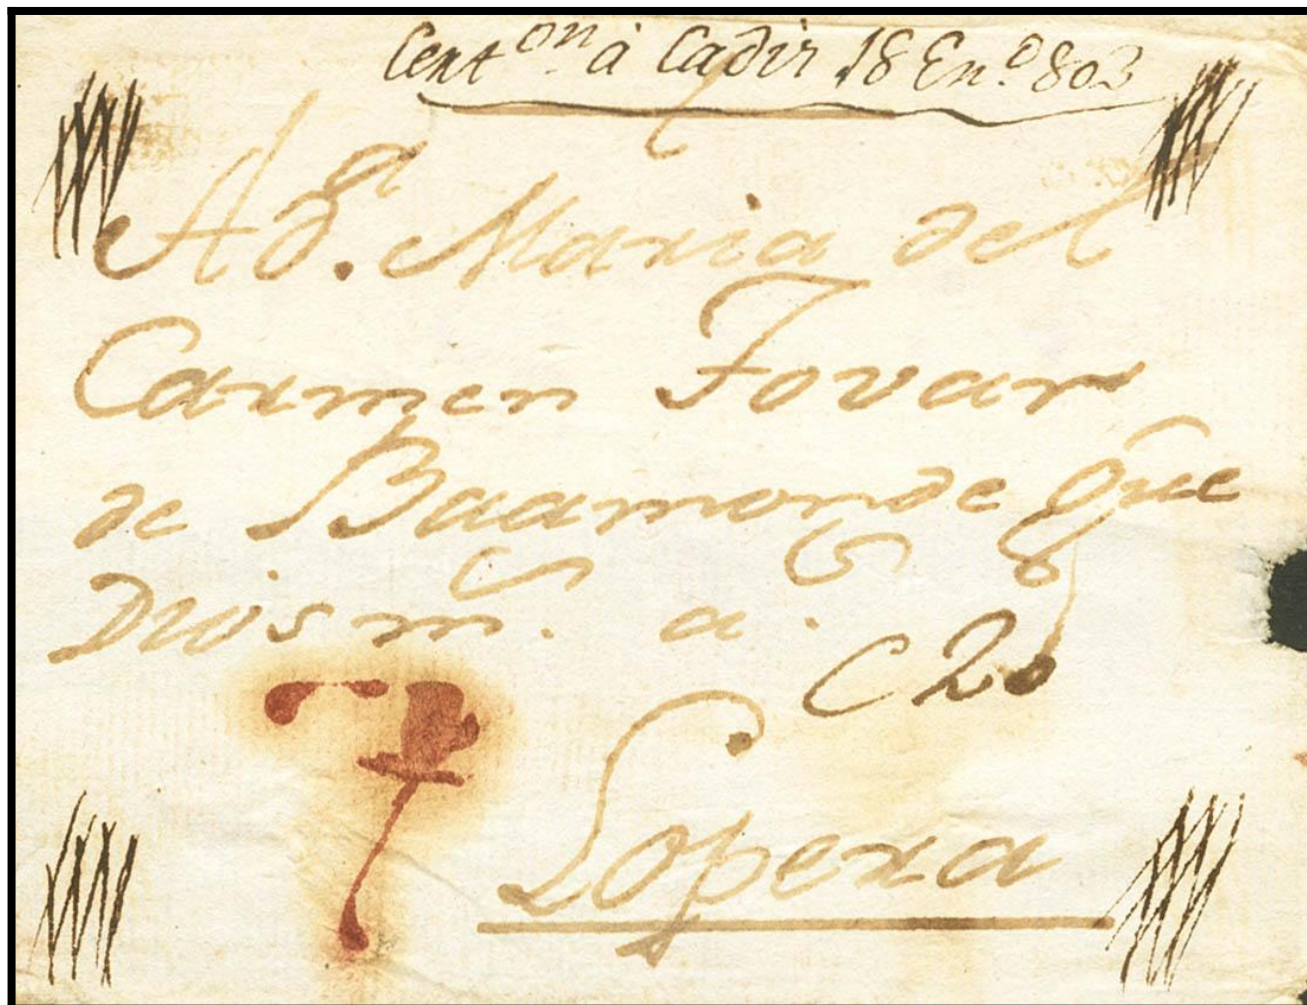 Cert.on à Cadiz 18 En.o 803
A D.a Maria del
Carmen Tovar
de Baamonde que
Dios m.s a.s
C20
7
Lopera